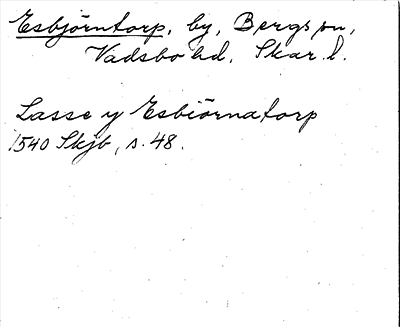 Esbjörntorp, by, Bergs sn,
Vadsbo hd, Skar. l.
Lasse y Esbiörnatorp
1540 Skjb, s. 48.